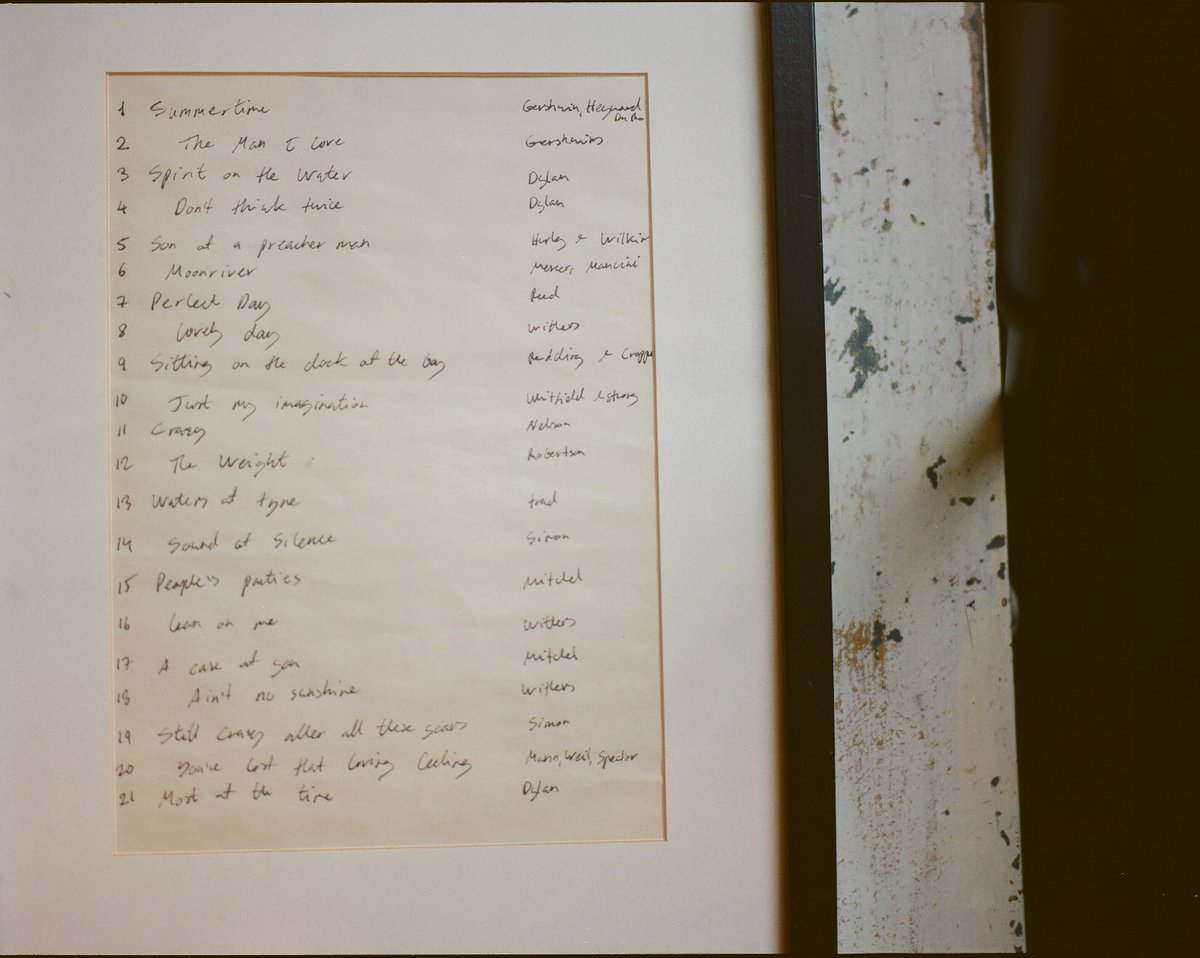 1 Summertime Gershwin, Heyward
2 The Man I Love Gershwins
3 Spirit on the Water Dylan
4 Don't think twice Dylan
5 Son of a preacher man Hurley & Wilkin
6 Moonriver Mercer, Mancini
7 Perfect Day Reed
8 Lovely day Withers
9 Sitting on the dock of the bay Redding & Croppe
10 Just my imagination Whitfield & Strong
11 Crazy Nelson
12 The Weight Robertson
13 Waters of tyne trad
14 Sound of Silence Simon
15 People's parties Mitchel
16 Lean on me Withers
17 A case of you Mitchel
18 Ain't no sunshine Withers
19 Still Crazy after all these years Simon
20 You've Lost that loving feeling Mann, Weil, Spector
21 Most of the time Dylan